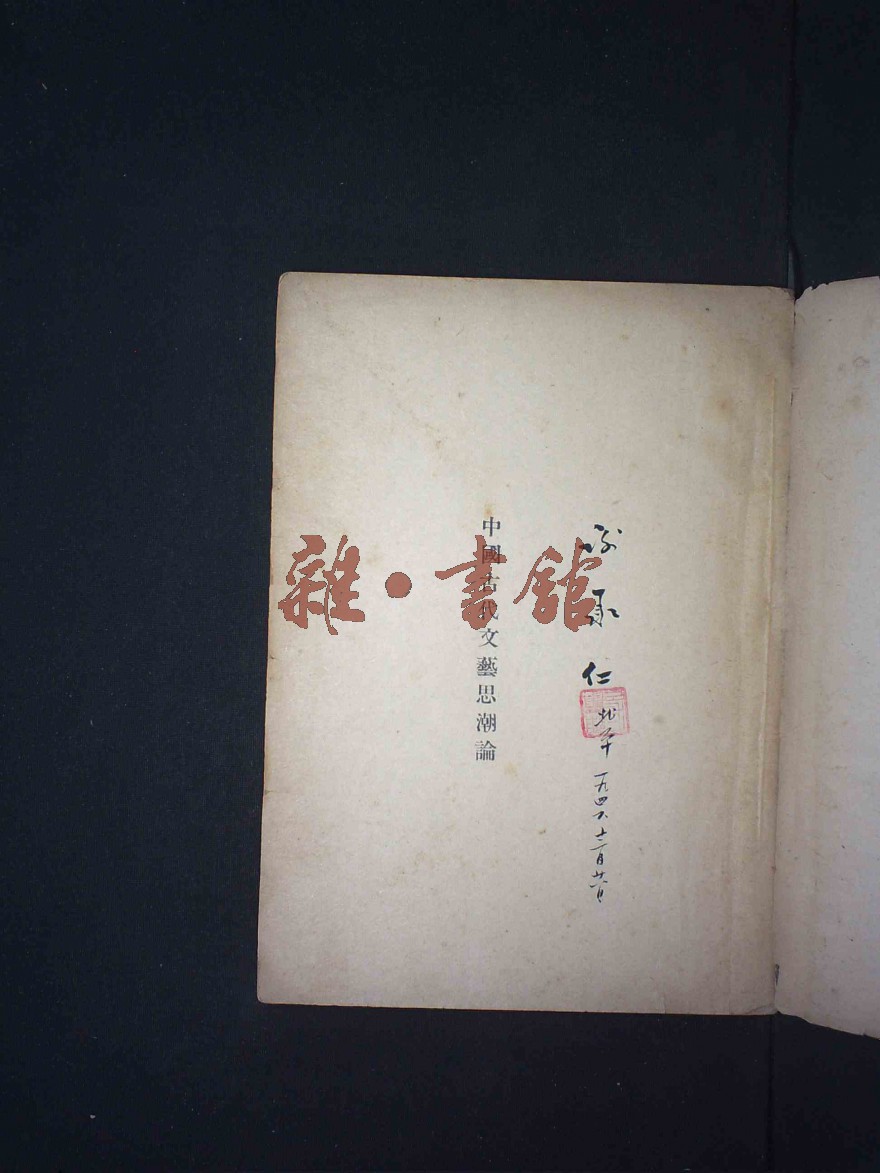 仁
北平
一九四六 十二月廿日
中國古代文藝思潮論
雜·書館